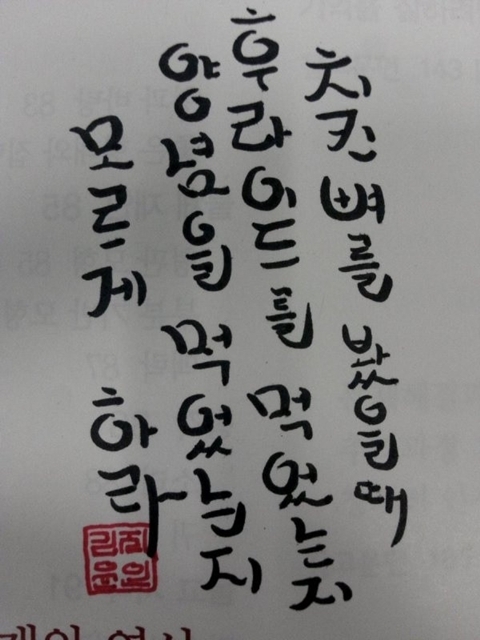 치킨뼈를 봤을때
후라이드를 먹었는지
양념을 먹었는지
모르게 하라